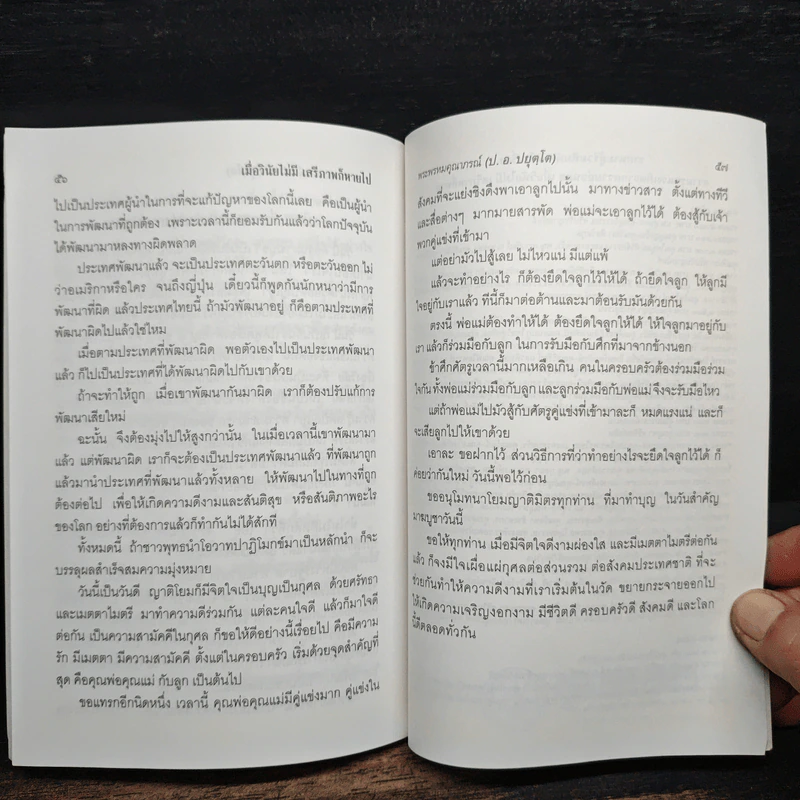 ๕๖
เมื่อวินัยไม่มี เสรีภาพก็หายไป
ไปเป็นประเทศผู้นำในการที่จะแก้ปัญหาของโลกนี้เลย คือเป็นผู้นำ
ในการพัฒนาที่ถูกต้อง เพราะเวลานี้ก็ยอมรับกันแล้วว่าโลกปัจจุบัน
ได้พัฒนามาหลงทางผิดพลาด
ประเทศพัฒนาแล้ว จะเป็นประเทศตะวันตก หรือตะวันออก ไม่
ว่าอเมริกาหรือใคร จนถึงญี่ปุ่น เดี๋ยวนี้ก็พูดกันนักหนาว่ามีการ
พัฒนาที่ผิด แล้วประเทศไทยนี้ ถ้ามัวพัฒนาอยู่ ก็คือตามประเทศที่
พัฒนาผิดไปแล้วใช่ไหม
เมื่อตามประเทศที่พัฒนาผิด พอตัวเองไปเป็นประเทศพัฒนา
แล้ว ก็ไปเป็นประเทศที่ได้พัฒนาผิดไปกับเขาด้วย
ถ้าจะทำให้ถูก เมื่อเขาพัฒนากันมาผิด เราก็ต้องปรับแก้การ
พัฒนาเสียใหม่
ฉะนั้น จึงต้องมุ่งไปให้สูงกว่านั้น ในเมื่อเวลานี้เขาพัฒนามา
แล้ว แต่พัฒนาผิด เราก็จะต้องเป็นประเทศพัฒนาแล้ว ที่พัฒนาถูก
แล้วมานำประเทศที่พัฒนาแล้วทั้งหลาย ให้พัฒนาไปในทางที่ถูก
ต้องต่อไป เพื่อให้เกิดความดีงามและสันติสุข หรือสันติภาพอะไร
ของโลก อย่างที่ต้องการแล้วก็ทำกันไม่ได้สักที
ทั้งหมดนี้ ถ้าชาวพุทธนำโอวาทปาฏิโมกข์มาเป็นหลักนำ ก็จะ
บรรลุผลสำเร็จสมความมุ่งหมาย
วันนี้เป็นวันดี ญาติโยมก็มีจิตใจเป็นบุญเป็นกุศล ด้วยศรัทธา
และเมตตาไมตรี มาทำความดีร่วมกัน แต่ละคนใจดี แล้วก็มาใจดี
ต่อกัน เป็นความสามัคคีในกุศล ก็ขอให้ดีอย่างนี้เรื่อยไป คือมีความ
รัก มีเมตตา มีความสามัคคี ตั้งแต่ในครอบครัว เริ่มด้วยจุดสำคัญที่
สุด คือคุณพ่อคุณแม่ กับลูก เป็นต้นไป
ขอแทรกอีกนิดหนึ่ง เวลานี้ คุณพ่อคุณแม่มีคู่แข่งมาก คู่แข่งใน
พระพรหมคุณาภรณ์ (ป. อ. ปยุตฺโต)
๕๗
สังคมที่จะแย่งชิงดึงพาเอาลูกไปนั้น มาทางข่าวสาร ตั้งแต่ทางทีวี
และสื่อต่างๆ มากมายสารพัด พ่อแม่จะเอาลูกไว้ได้ ต้องสู้กับเจ้า
พวกคู่แข่งที่เข้ามา
แต่อย่ามัวไปสู้เลย ไม่ไหวแน่ มีแต่แพ้
แล้วจะทำอย่างไร ก็ต้องยึดใจลูกไว้ให้ได้ ถ้ายึดใจลูก ให้ลูกมี
ใจอยู่กับเราแล้ว ทีนี้ก็มาต่อต้านและมาต้อนรับมันด้วยกัน
ตรงนี้ พ่อแม่ต้องทำให้ได้ ต้องยึดใจลูกให้ได้ ให้ใจลูกมาอยู่กับ
เรา แล้วก็ร่วมมือกับลูก ในการรับมือกับศึกที่มาจากข้างนอก
ข้าศึกศัตรูเวลานี้มากเหลือเกิน คนในครอบครัวต้องร่วมมือร่วม
ใจกัน ทั้งพ่อแม่ร่วมมือกับลูก และลูกร่วมมือกับพ่อแม่ จึงจะรับมือไหว
แต่ถ้าพ่อแม่ไปมัวสู้กับศัตรูคู่แข่งที่เข้ามาละก็ หมดแรงแน่ และก็
จะเสียลูกไปให้เขาด้วย
เอาละ ขอฝากไว้ ส่วนวิธีการที่ว่าทำอย่างไรจะยึดใจลูกไว้ได้ ก็
ค่อยว่ากันใหม่ วันนี้พอไว้ก่อน
ขออนุโมทนาโยมญาติมิตรทุกท่าน ที่มาทำบุญ ในวันสำคัญ
มาฆบูชาวันนี้
ขอให้ทุกท่าน เมื่อมีจิตใจดีงามผ่องใส และมีเมตตาไมตรีต่อกัน
แล้ว ก็จงมีใจเผื่อแผ่กุศลต่อส่วนรวม ต่อสังคมประเทศชาติ ที่จะ
ช่วยกันทำให้ความดีงามที่เราเริ่มต้นในวัด ขยายกระจายออกไป
ให้เกิดความเจริญงอกงาม มีชีวิตดี ครอบครัวดี สังคมดี และโลก
นี้ดีตลอดทั่วกัน